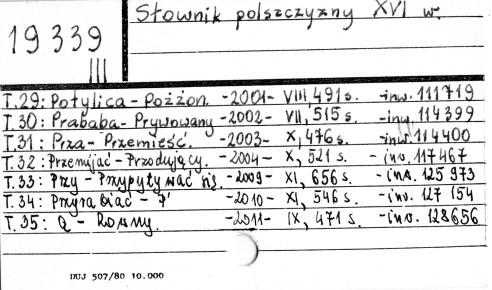 Słownik polszczyzny XVI w.
19339
III
T.29: Potylica - Pożżon. - 2001 - VIII, 491 s. - inw. 111719
T.30: Prababa - Prywowany - 2002 - VII, 515 s. - inw. 114399
T.31: Prza - Przemieść. - 2003 - X, 476 s. - inw. 114400
T.32: Przemijać - Przodujący. - 2004 - X, 521 s. - inw. 117467
T.33: Przy - Przypytywać się. - 2009 - XI, 656 s. - inw. 125973
T.34: Przyrabiać - - 2010 - XI, 546 s. - inw. 127154
T.35: Q - Rowny. - 2011 - IX, 471 s. - inw. 128656
DUJ 507/80 10.000